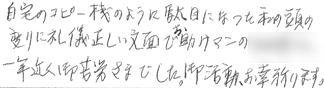 自宅のコピー機のように駄目になった私の頭の
変りに礼儀正しい文面で助けマンの
一年近く御苦労さまでした。御活動お幸祈ります。